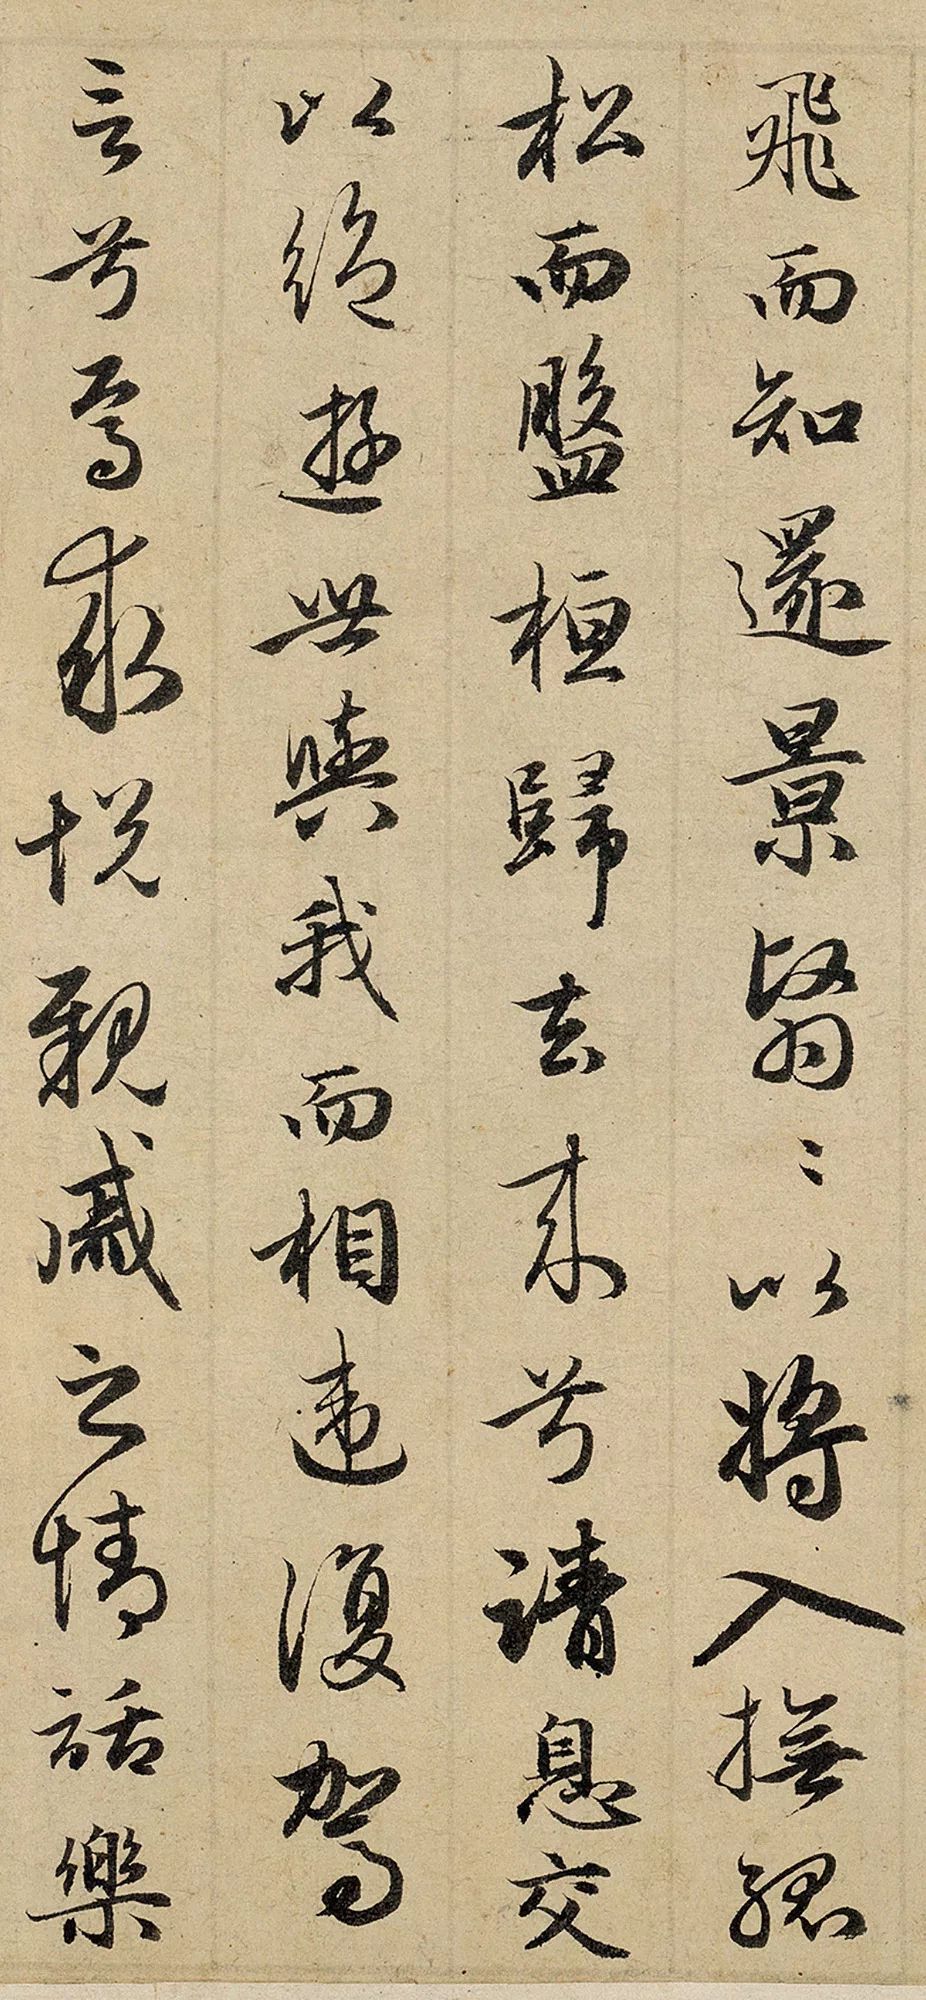 飛而知還景翳〻以將入撫孤
松而盤桓歸去来兮請息交
以絶遊世與我而相違復駕
言兮焉求悅親戚之情話樂